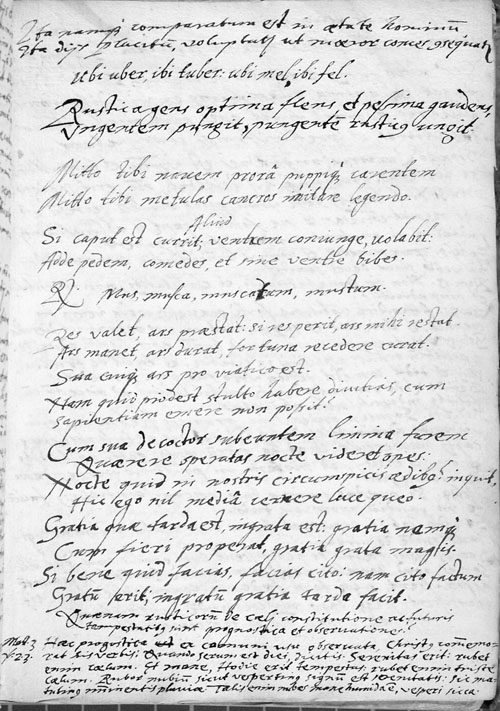 Ita namq; comparatum est in ætate hominũ
Ita dijs placitũ, voluptatẽ ut mœror comes, consequatr
Ubi uber, ibi tuber: ubi mel, ibi fel.
Rustica gens optima flens et peßima gaudens,
Ungentem pungit, pungentẽ rusticus ungit.
Mitto tibi navem prorâ puppiq; carentem
Mitto tibi metulas cancros imitare legendo.
Aliud
Si caput est currit, ventrem coniunge, volabit:
Adde pedem, comedes, et sine ventre bibes.
R. Mus, musca, muscatum, mustum.
Res valet, ars præstat: si res perit, ars mihi restat.
Ars manet, ars durat, fortuna recedere curat.
Sua cuiq; ars pro viatico est.
Nam quid prodest stulto habere divitias, cum
sapientiam emere non poßit?
Cum sua decoctor subeuntem limina furem
Quærere speratas nocte videret opes:
Nocte quid in nostris circumspicis ædibꝰ inquit,
Hic ego nil mediâ cernere luce queo.
Gratia quæ tarda est, ingrata est: gratia namq;
Cum fieri properat, gratia grata magis.
Si bene quid facias, facias cito: nam cito factum
Gratũ erit: ingratũ gratia tarda facit.
Quænam rusticorũ de cæli constitutione ac futuris
tempestatibꝰ sint prognostica et observationes?
Mat. 3
Hæc prognostica ex communi usu observata, Christꝰ commemo-
rat his verbis: Quando serum est dicitis. Serenitas erit: rubet
enim cælum. Et mane, Hodie erit tempestas: rubet enim triste
cælum. Rubor nubiũ sicut vespertinꝰ signũ est serenitatis: sic ma-
tutinꝰ imminentis pluviæ. Tales enim nubes mane humidæ, vesperi siccæ